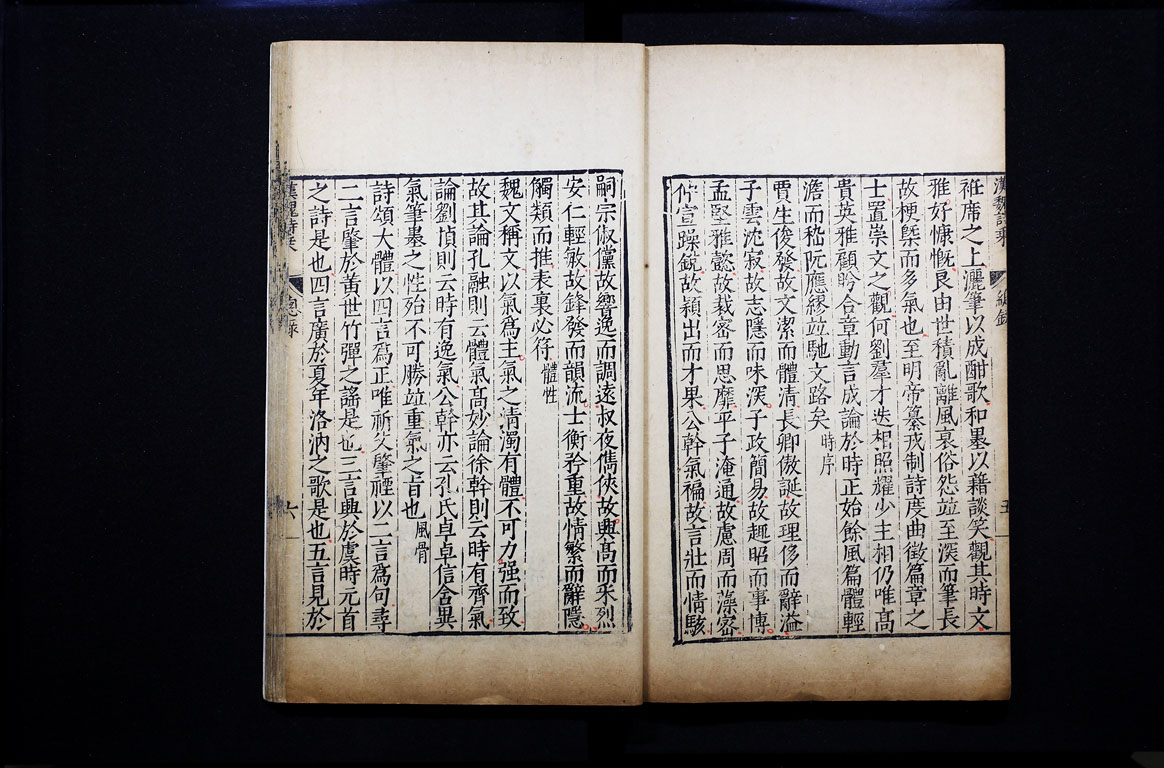 漢魏詩乘
總錄
五
衽席之上灑筆以成酣歌和墨以藉談笑觀其時文
雅好慷慨良由世積亂離風衰俗怨竝至深而筆長
故梗槩而多氣也至明帝纂戎制詩度曲徵篇章之
士置崇文之觀何劉羣才迭相照耀少主相仍唯高
貴英雅顧眄合章動言成論於時正始餘風篇體輕
澹而嵇阮應繆竝馳文路矣 時序
賈生俊發故文潔而體清長卿傲誕故理侈而辭溢
子雲沈寂故志隱而味深子政簡易故趣昭而事博
孟堅雅懿故裁密而思靡平子淹通故慮周而藻密
仲宣躁銳故穎出而才果公幹氣褊故言壯而情駭
嗣宗俶儻故響逸而調遠叔夜儁俠故興高而采烈
安仁輕敏故鋒發而韻流士衡矜重故情繁而辭隱
觸類而推表裏必符 體性
魏文稱文以氣爲主氣之清濁有體不可力强而致
故其論孔融則云體氣高妙論徐幹則云時有齊氣
論劉楨則云時有逸氣公幹亦云孔氏卓卓信含異
氣筆墨之性殆不可勝竝重氣之旨也 風骨
詩頌大體以四言爲正唯祈父肇禋以二言爲句尋
二言肇於黃世竹彈之謠是也三言興於虞時元首
之詩是也四言廣於夏年洛汭之歌是也五言見於
漢魏詩乘
總錄
六